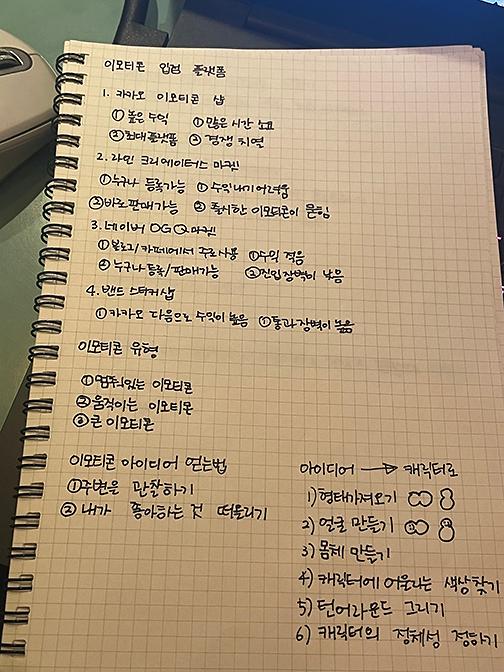 이모티콘 입점 플랫폼
1. 카카오 이모티콘 샵
① 높은 수익 ① 많은 시간 노고
② 최대플랫폼 ② 경쟁 치열
2. 라인 크리에이터스 마켓
① 누구나 등록가능 ① 수익내기 어려움
② 바로판매가능 ② 출시한 이모티콘이 묻힘
3. 네이버 OGQ마켓
① 블로그/카페에서 주로사용 ① 수익 적음
② 누구나 등록/판매가능 ② 진입장벽이 낮음
4. 밴드 스티커샵
① 카카오 다음으로 수익이 높음 ① 통과장벽이 높음
이모티콘 유형
① 멈춰있는 이모티콘
② 움직이는 이모티콘
③ 큰 이모티콘
이모티콘 아이디어 얻는법
① 주변을 관찰하기
② 내가 좋아하는 것 떠올리기
아이디어 → 캐릭터로
1) 형태가져오기
2) 얼굴 만들기
3) 몸체 만들기
4) 캐릭터에 어울리는 색상찾기
5) 턴어라운드 그리기
6) 캐릭터의 정체성 정하기